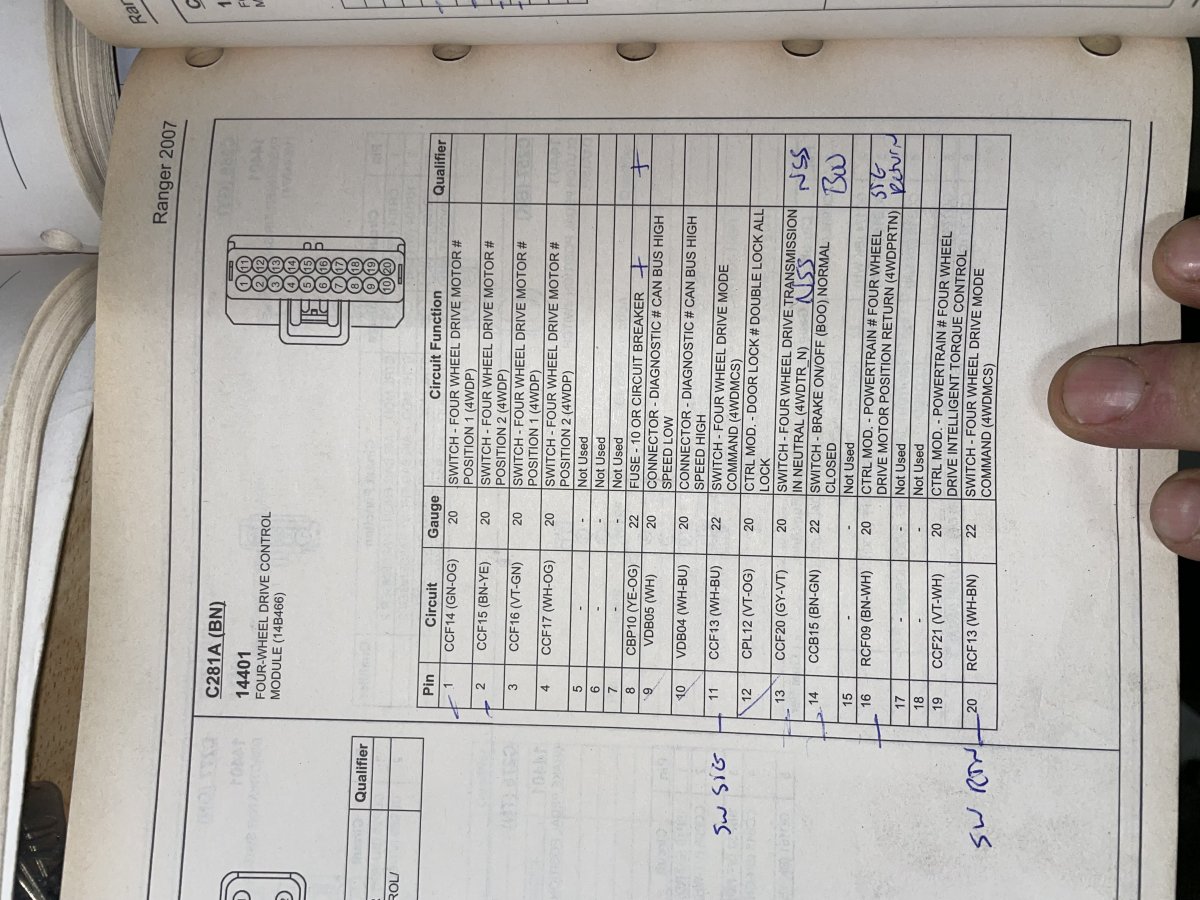 Ranger 2007
C281A (BN)
14401
FOUR-WHEEL DRIVE CONTROL
MODULE (14B466)
1 11
2 12
3 13
4 14
5 15
6 16
7 17
8 18
9 19
10 20
Pin Circuit Gauge Circuit Function Qualifier
1 CCF14 (GN-OG) 20 SWITCH - FOUR WHEEL DRIVE MOTOR #
POSITION 1 (4WDP)
2 CCF15 (BN-YE) 20 SWITCH - FOUR WHEEL DRIVE MOTOR #
POSITION 2 (4WDP)
3 CCF16 (VT-GN) 20 SWITCH - FOUR WHEEL DRIVE MOTOR #
POSITION 1 (4WDP)
4 CCF17 (WH-OG) 20 SWITCH - FOUR WHEEL DRIVE MOTOR #
POSITION 2 (4WDP)
5 - - Not Used
6 - - Not Used
7 - - Not Used
8 CBP10 (YE-OG) 22 FUSE - 10 OR CIRCUIT BREAKER + +
9 VDB05 (WH) 20 CONNECTOR - DIAGNOSTIC # CAN BUS HIGH
SPEED LOW
10 VDB04 (WH-BU) 20 CONNECTOR - DIAGNOSTIC # CAN BUS HIGH
SPEED HIGH
SW SIG 11 CCF13 (WH-BU) 22 SWITCH - FOUR WHEEL DRIVE MODE
COMMAND (4WDMCS)
12 CPL12 (VT-OG) 20 CTRL MOD. - DOOR LOCK # DOUBLE LOCK ALL
LOCK
13 CCF20 (GY-VT) 20 SWITCH - FOUR WHEEL DRIVE TRANSMISSION NSS
IN NEUTRAL (4WDTR_N) NSS
14 CCB15 (BN-GN) 22 SWITCH - BRAKE ON/OFF (BOO) NORMAL
CLOSED
15 - - Not Used
16 RCF09 (BN-WH) 20 CTRL MOD. - POWERTRAIN # FOUR WHEEL SIG
DRIVE MOTOR POSITION RETURN (4WDPRTN) Return
17 - - Not Used
18 - - Not Used
19 CCF21 (VT-WH) 20 CTRL MOD. - POWERTRAIN # FOUR WHEEL
DRIVE INTELLIGENT TORQUE CONTROL
SW RTN 20 RCF13 (WH-BN) 22 SWITCH - FOUR WHEEL DRIVE MODE
COMMAND (4WDMCS)
Qualifier